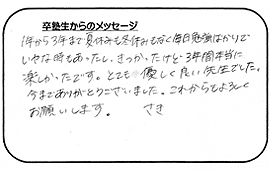 卒塾生からのメッセージ
1年から3年まで夏休みも冬休みもなく毎日勉強ばかりで
いやな時もあったし、きつかったけど3年間本当に
楽しかったです。とても優しく良い先生でした。
今までありがとうございました。これからもよろしく
お願いします。 さき